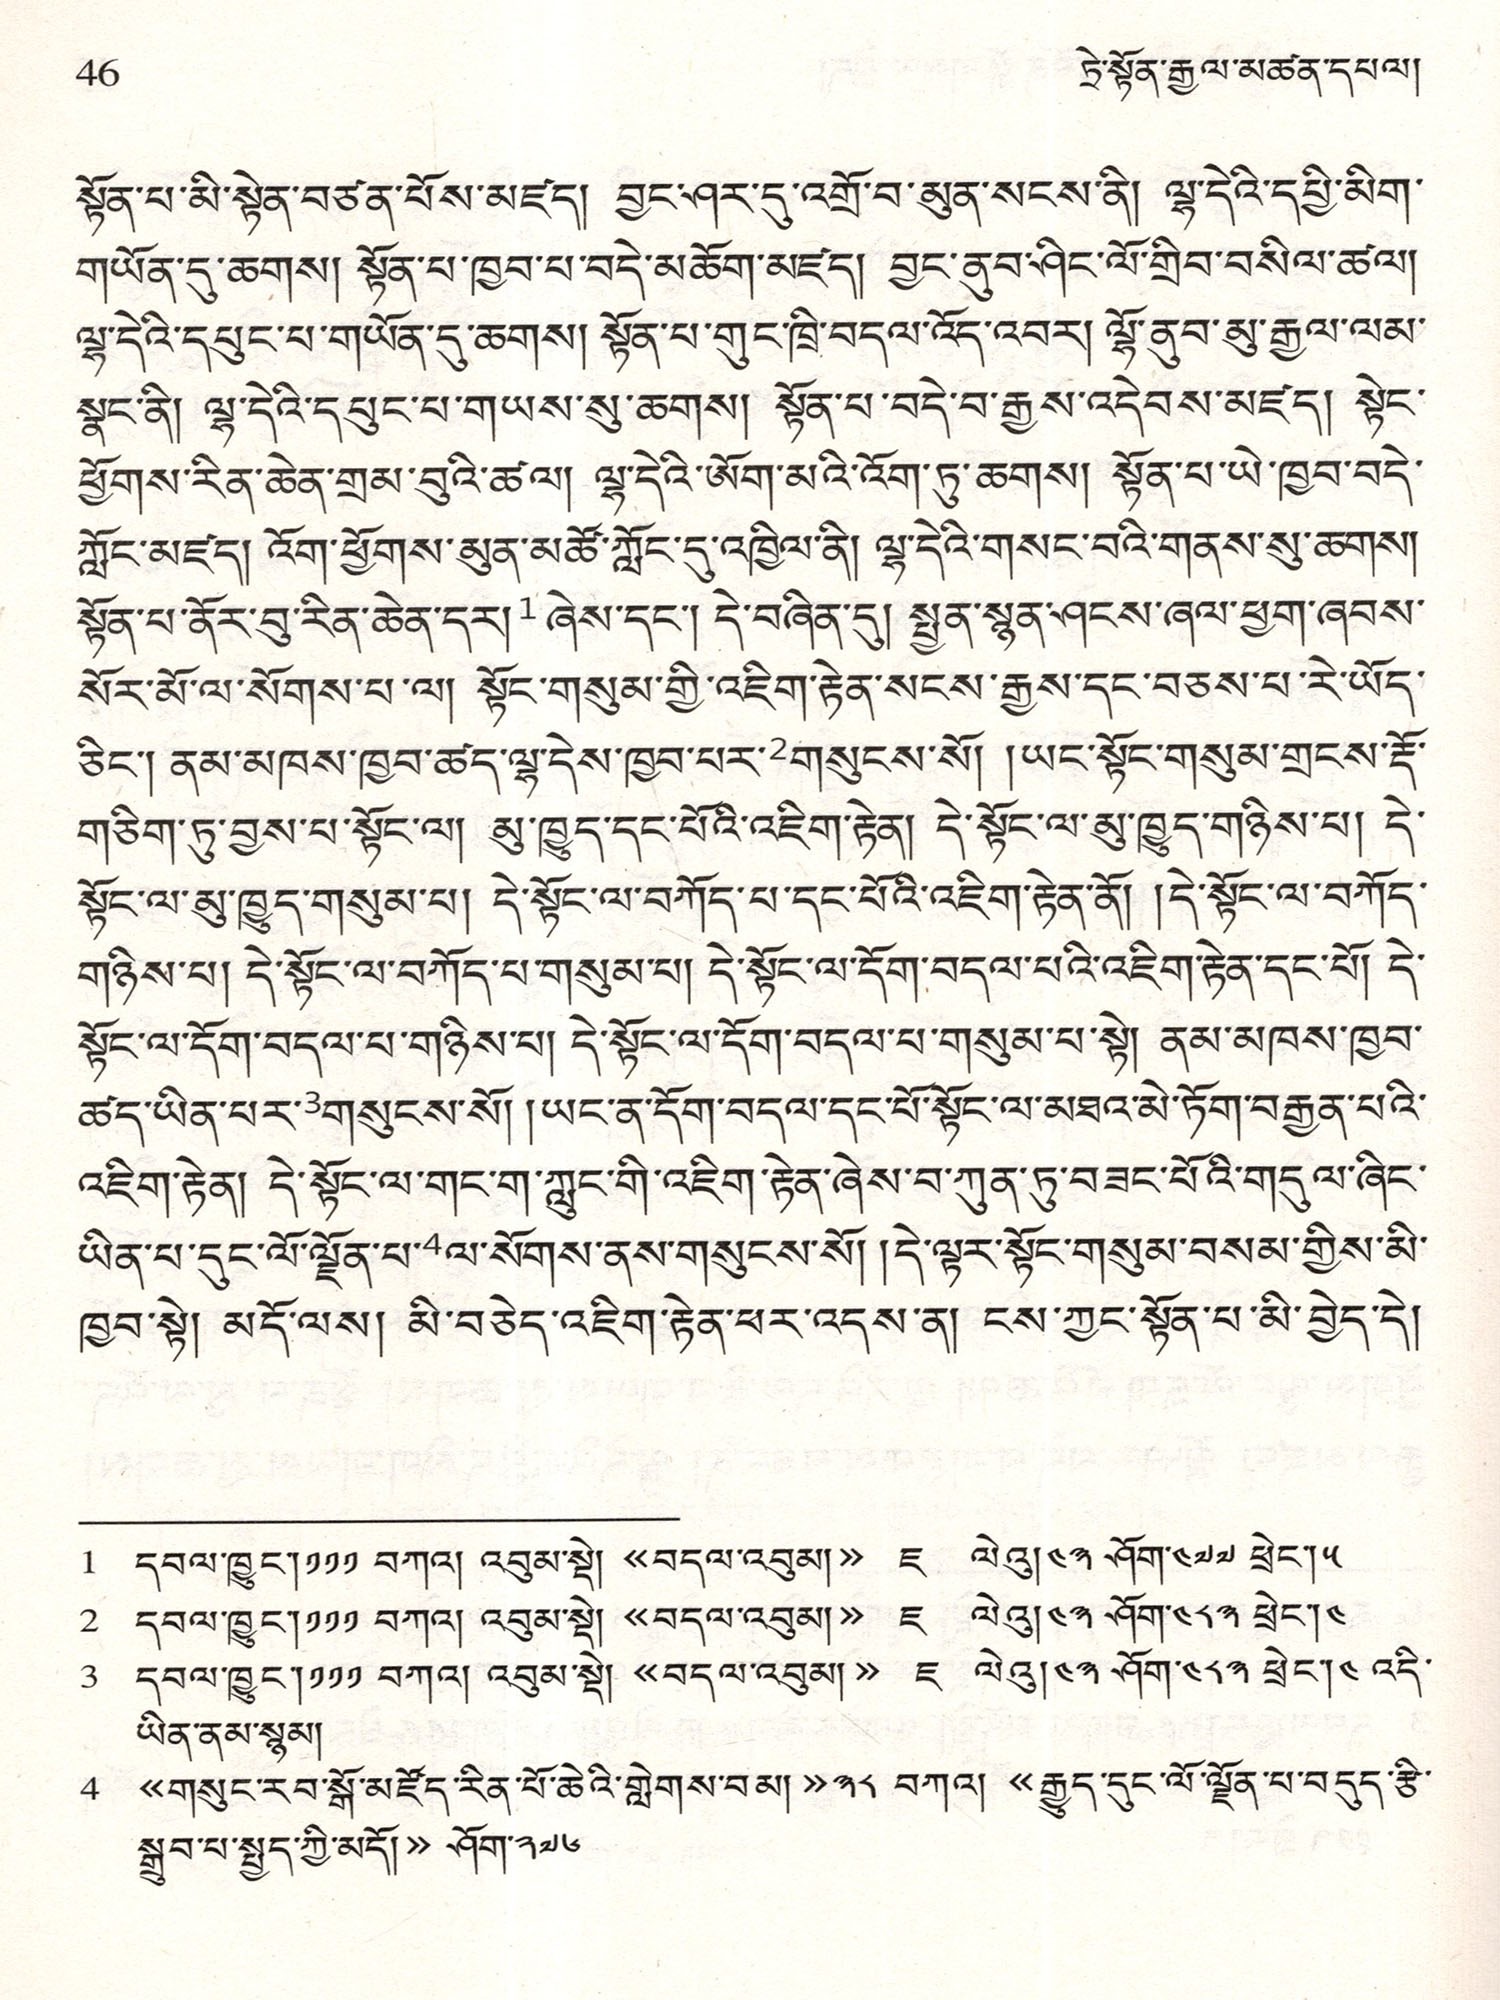 46
ཏྲེ་སྟོན་རྒྱལ་མཚན་དཔལ།
སྟོན་པ་མི་སྟེན་བཙན་པོས་མཛད། བྱང་ཤར་དུ་འགྲོ་བ་མུན་སངས་ནི། ལྷ་དེའི་དཔྱི་མིག་
གཡོན་དུ་ཆགས། སྟོན་པ་ཁྱབ་པ་བདེ་མཆོག་མཛད། བྱང་ནུབ་ཤིང་ལོ་གྲིབ་བསིལ་ཚལ།
ལྷ་དེའི་དཔུང་པ་གཡོན་དུ་ཆགས། སྟོན་པ་གུང་ཁྲི་བདལ་འོད་འབར། ལྷོ་ནུབ་མུ་རྒྱལ་ལམ་
སྣང་ནི། ལྷ་དེའི་དཔུང་པ་གཡས་སུ་ཆགས། སྟོན་པ་བདེ་བ་རྒྱས་འདེབས་མཛད། སྟེང་
ཕྱོགས་རིན་ཆེན་གྲམ་བུའི་ཚལ། ལྷ་དེའི་ཨོག་མའི་འོག་ཏུ་ཆགས། སྟོན་པ་ཡེ་ཁྱབ་བདེ་
ཀློང་མཛད། འོག་ཕྱོགས་མུན་མཚོ་ཀློང་དུ་འཁྱིལ་ནི། ལྷ་དེའི་གསང་བའི་གནས་སུ་ཆགས།
སྟོན་པ་ནོར་བུ་རིན་ཆེན་དར།1 ཞེས་དང་། དེ་བཞིན་དུ། སྤྱན་སྙན་ཤངས་ཞལ་ཕྱག་ཞབས་
སོར་མོ་ལ་སོགས་པ་ལ། སྟོང་གསུམ་གྱི་འཇིག་རྟེན་སངས་རྒྱས་དང་བཅས་པ་རེ་ཡོད་
ཅིང་། ནམ་མཁས་ཁྱབ་ཚད་ལྷ་དེས་ཁྱབ་པར་2གསུངས་སོ། །ཡང་སྟོང་གསུམ་གྲངས་རྡོ་
གཅིག་ཏུ་བྱས་པ་སྟོང་ལ། མུ་ཁྱུད་དང་པོའི་འཇིག་རྟེན། དེ་སྟོང་ལ་མུ་ཁྱུད་གཉིས་པ། དེ་
སྟོང་ལ་མུ་ཁྱུད་གསུམ་པ། དེ་སྟོང་ལ་བཀོད་པ་དང་པོའི་འཇིག་རྟེན་ནོ། །དེ་སྟོང་ལ་བཀོད་
གཉིས་པ། དེ་སྟོང་ལ་བཀོད་པ་གསུམ་པ། དེ་སྟོང་ལ་དོག་བདལ་པའི་འཇིག་རྟེན་དང་པོ། དེ་
སྟོང་ལ་དོག་བདལ་པ་གཉིས་པ། དེ་སྟོང་ལ་དོག་བདལ་པ་གསུམ་པ་སྟེ། ནམ་མཁས་ཁྱབ་
ཚད་ཡིན་པར་3གསུངས་སོ། །ཡང་ན་དོག་བདལ་དང་པོ་སྟོང་ལ་མཐའ་མེ་ཏོག་བརྒྱན་པའི་
འཇིག་རྟེན། དེ་སྟོང་ལ་གང་ག་ཀླུང་གི་འཇིག་རྟེན་ཞེས་བ་ཀུན་ཏུ་བཟང་པོའི་གདུལ་ཞིང་
ཡིན་པ་དུང་ལོ་ལྗོན་པ་4ལ་སོགས་ནས་གསུངས་སོ། །དེ་ལྟར་སྟོང་གསུམ་བསམ་གྱིས་མི་
ཁྱབ་སྟེ། མདོ་ལས། མི་བཅེད་འཇིག་རྟེན་ཕར་འདས་ན། ངས་ཀྱང་སྟོན་པ་མི་བྱེད་དེ།
1 དབལ་ཁྱུང་།༡༡༡ བཀའ། འབུམ་སྡེ། «བདལ་འབུམ།» ཇ ལེའུ།༤༣ ཤོག་༤༧༧ ཕྲེང་།༥
2 དབལ་ཁྱུང་།༡༡༡ བཀའ། འབུམ་སྡེ། «བདལ་འབུམ།» ཇ ལེའུ།༤༣ ཤོག་༤༨༣ ཕྲེང་།༤
3 དབལ་ཁྱུང་།༡༡༡ བཀའ། འབུམ་སྡེ། «བདལ་འབུམ།» ཇ ལེའུ།༤༣ ཤོག་༤༨༣ ཕྲེང་།༤ འདི་
ཡིན་ནམ་སྙམ།
4 «གསུང་རབ་སྒོ་མཛོད་རིན་པོ་ཆེའི་གླེགས་བམ།»༣༨ བཀའ། «རྒྱུད་དུང་ལོ་ལྗོན་པ་བདུད་རྩི་
སྒྲུབ་པ་སྤྱད་ཀྱི་མདོ།» ཤོག་༢༧༦